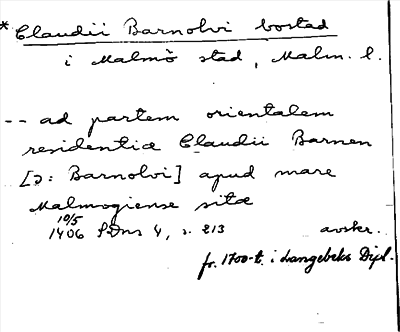 * Claudii Barnolvi bostad
i Malmö stad, Malm. l.
-- ad partem orientalem
residentiæ Claudii Barnen
[ɔ: Barnolvi] apud mare
Malmogiense sitæ
10/5
1406 SDns 4, s. 213 avskr.
fr. 1700-t. i Langebeks Dipl.